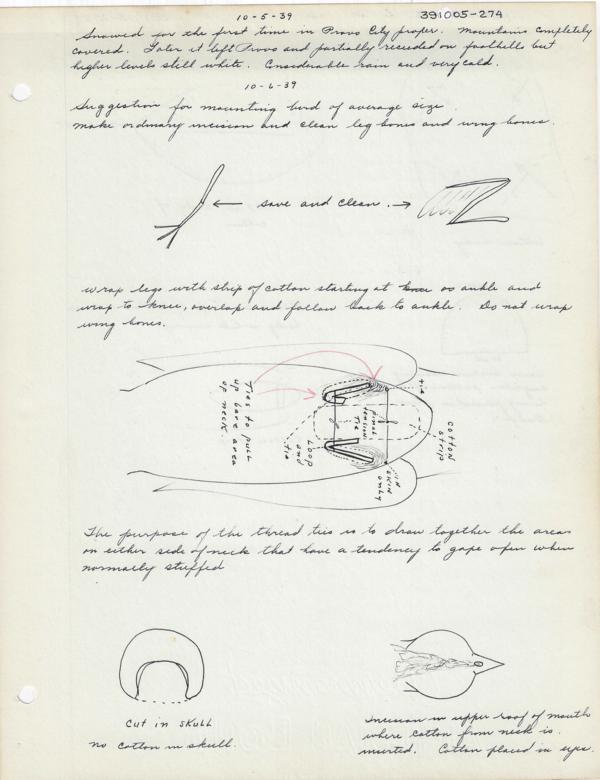 10-5-39
391005-274
Snowed for the first time in Provo City proper. Mountains completely
covered. Later it left Provo and partially receeded on foothills but
higher levels still white. Considerable rain and very cold.
10-6-39
Suggestion for mounting bird of average size.
Make ordinary incision and clean leg bones and wing bones.
← save and clean. →
Wrap legs with strip of cotton starting at knee or ankle and
wrap to knee, overlap and follow back to ankle. Do not wrap
wing bones.
Ties to pull
up bare area
of neck.
tie
Loop
and
tie
Final
tension
tie
tie
in
skin
only
cotton
strip
The purpose of the thread ties is to draw together the areas
on either side of neck that have a tendency to gape open when
normally stuffed
Cut in skull
no cotton in skull.
Incision in upper roof of mouth
where cotton from neck is
inserted. Cotton placed in eyes.